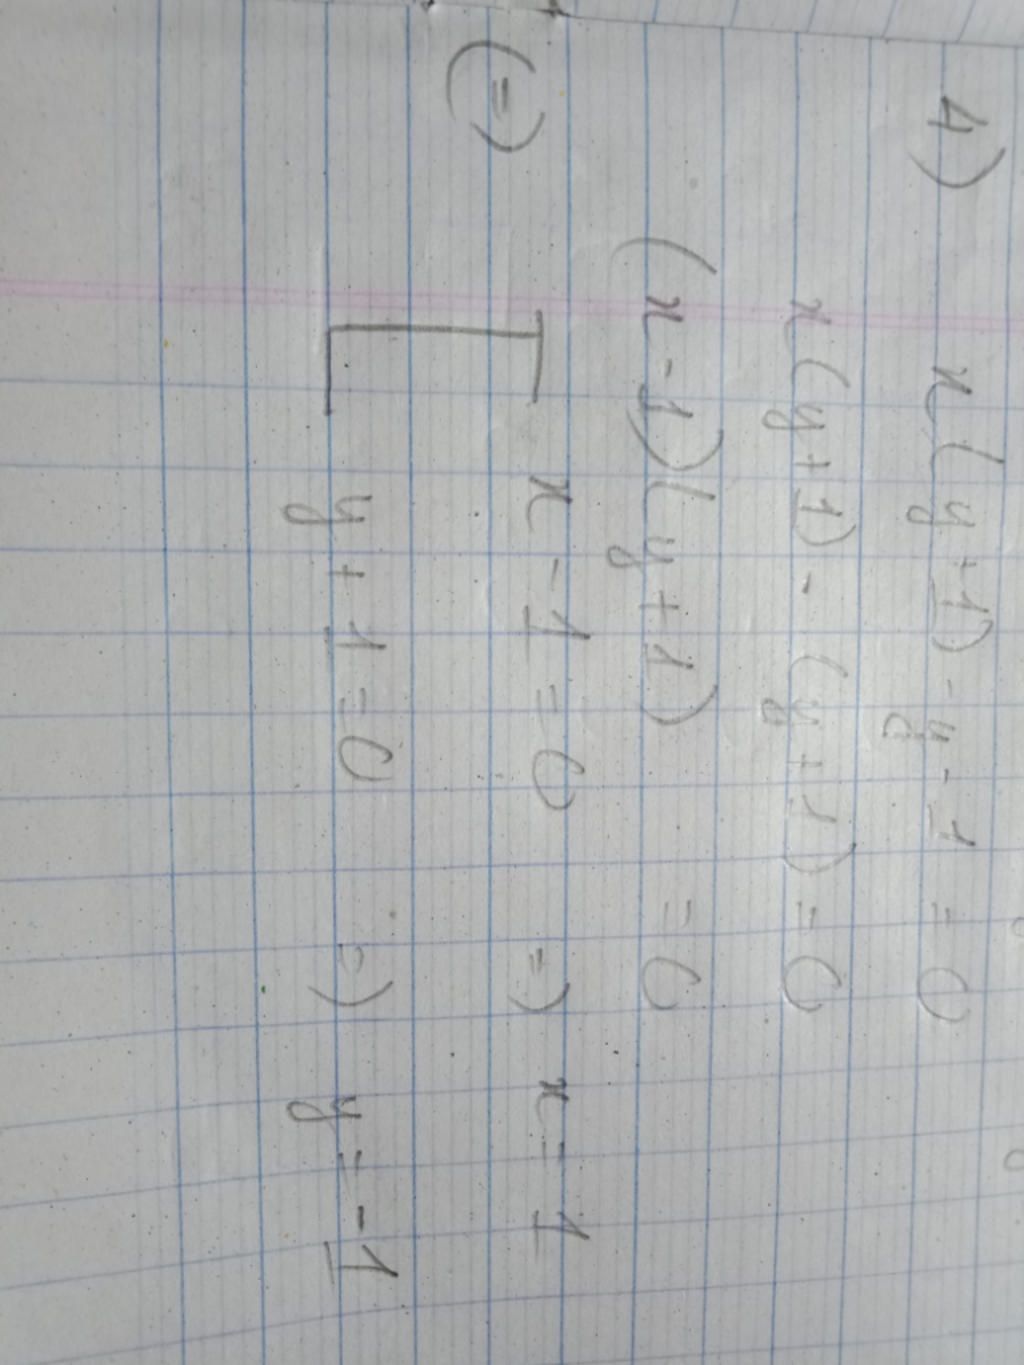 4) x(y+1)-y-1 = 0
x(y+1) - (y+1) = 0
(x-1)(y+1) = 0
(=) [ x - 1 = 0 =) x = 1
y + 1 = 0 =) y = -1